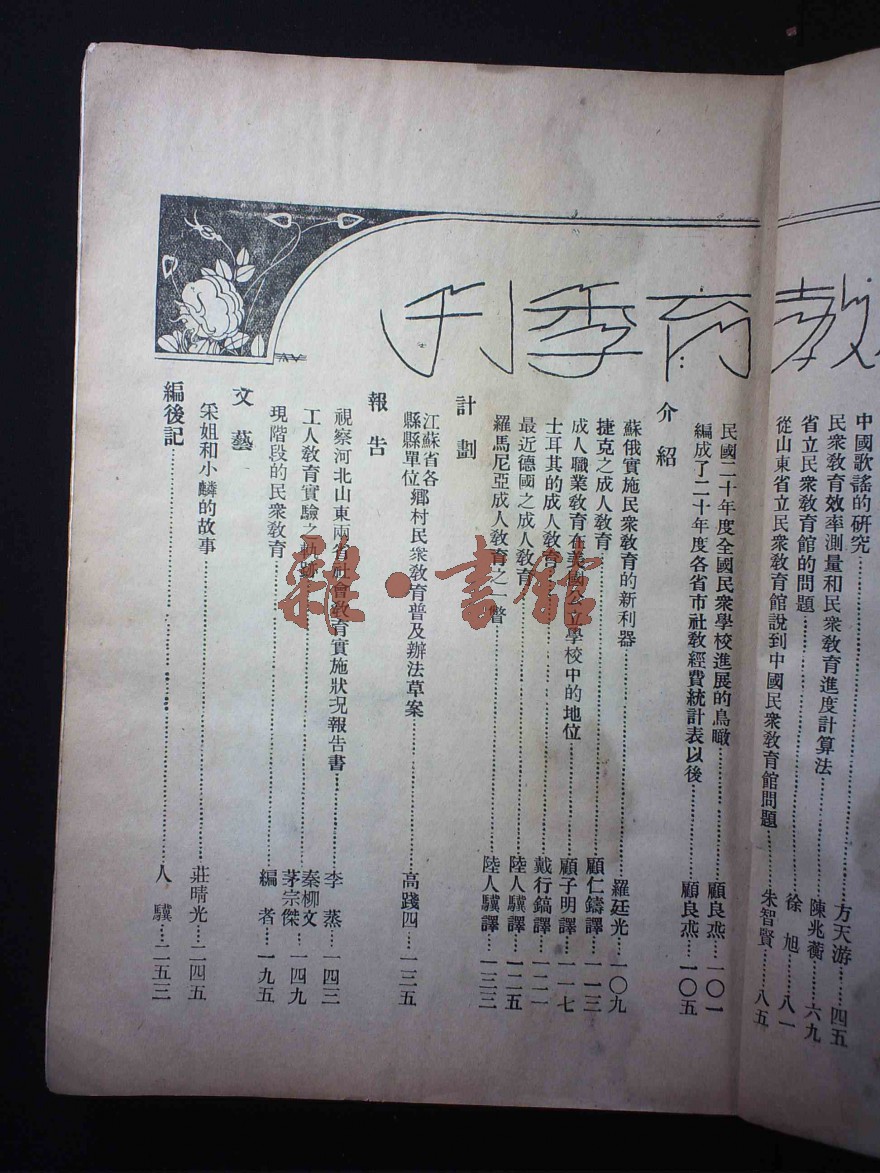 教育季刊
中國歌謠的研究……方天游……四五
民衆教育效率測量和民衆教育進度計算法……陳兆蘅……六九
省立民衆教育館的問題……徐旭……八一
從山東省立民衆教育館說到中國民衆教育館問題……朱智賢……八五
介紹
民國二十年度全國民衆學校進展的鳥瞰……顧良烝……一〇一
編成了二十年度各省市社教經費統計表以後……顧良烝……一〇五
蘇俄實施民衆教育的新利器……羅廷光……一〇九
捷克之成人教育……顧仁鑄譯……一一三
成人職業教育在美國公立學校中的地位……顧子明譯……一一七
士耳其的成人教育……戴行鎬譯……一二一
最近德國之成人教育……陸人驥譯……一二五
羅馬尼亞成人教育之一瞥……陸人驥譯……一三三
計劃
江蘇省各縣縣單位鄉村民衆教育普及辦法草案……高踐四……一三五
報告
視察河北山東兩省社會教育實施狀况報告書……李蒸……一四三
工人教育實驗之軌跡……秦柳文 茅宗傑……一四九
現階段的民衆教育……編者……一九五
文藝
采姐和小麟的故事……莊晴光……二四五
編後記……人驥……二五三
雜·書館